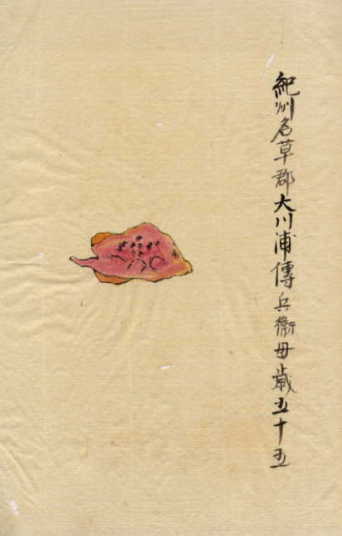 紀州名草郡大川浦傳兵衛母歳五十五